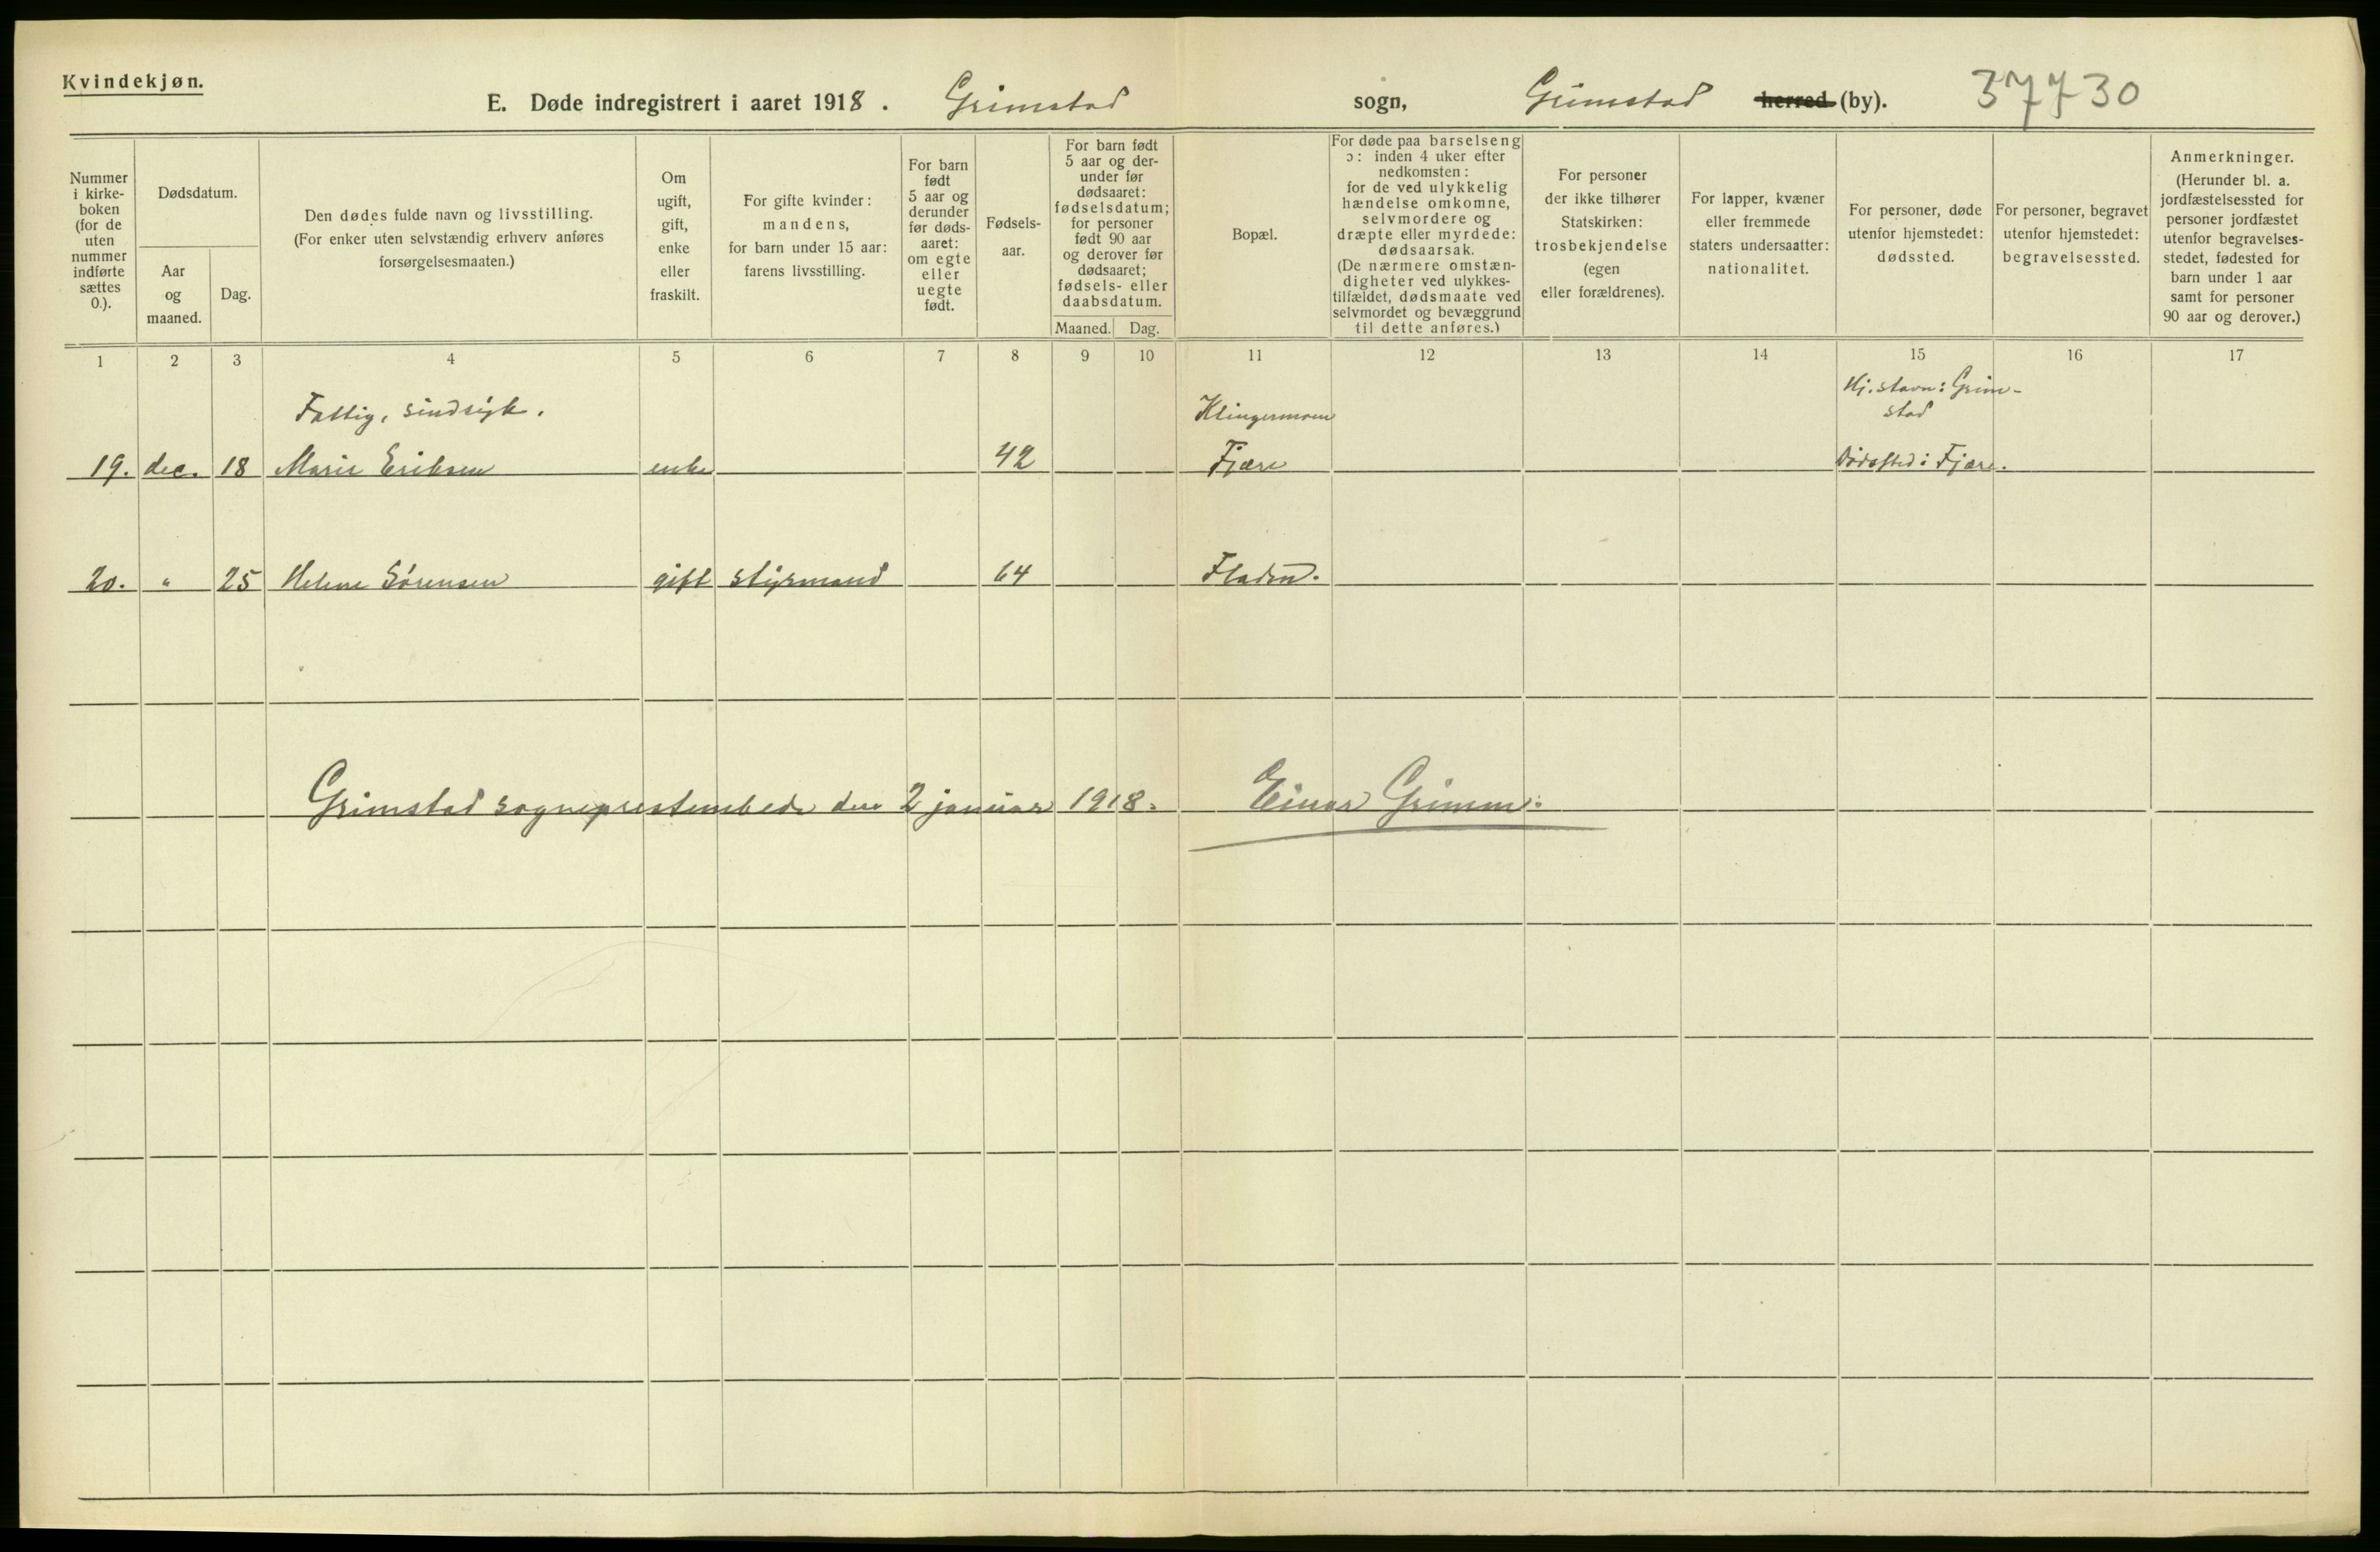 Kvindekjøn.
E. Døde indregistrert i aaret 1918. Grimstad sogn, Grimstad herred (by). 37730
Nummer i kirke-boken (for de uten nummer indførte sættes 0.).
Dødsdatum.
Aar og maaned.
Dag.
Den dødes fulde navn og livsstilling.
(For enker uten selvstændig erhverv anføres
forsørgelsesmaaten.)
Om ugift, gift, enke eller fraskilt.
For gifte kvinder:
mandens,
for barn under 15 aar:
farens livsstilling.
For barn født 5 aar og derunder før døds-aaret: om egte eller uegte født.
Fødsels-aar.
For barn født
5 aar og der-
under før
dødsaaret:
fødselsdatum;
for personer
født 90 aar
og derover før
dødsaaret;
fødsels- eller
daabsdatum.
Maaned. Dag.
Bopæl.
For døde paa barselseng
ɔ: inden 4 uker efter
nedkomsten:
for de ved ulykkelig
hændelse omkomne,
selvmordere og
dræpte eller myrdede:
dødsaarsak.
(De nærmere omstæn-
digheter ved ulykkes-
tilfældet, dødsmaate ved
selvmordet og bevæggrund
til dette anføres.)
For personer
der ikke tilhører
Statskirken:
trosbekjendelse
(egen
eller forældrenes).
For lapper, kvæner
eller fremmede
staters undersaatter:
nationalitet.
For personer, døde
utenfor hjemstedet:
dødssted.
For personer, begravet
utenfor hjemstedet:
begravelsessted.
Anmerkninger.
(Herunder bl. a.
jordfæstelsessted for
personer jordfæstet
utenfor begravelses-
stedet, fødested for
barn under 1 aar
samt for personer
90 aar og derover.)
1 2 3 4 5 6 7 8 9 10 11 12 13 14 15 16 17
Fattig, sindsyk. Klingermoen Hj.stavn: Grim-
stad
19. dec. 18 Marie Eriksen enke 42 Fjære Dødssted: Fjære.
20. " 25 Helene Sørensen gift styrmand 64 Fladen.
Grimstad sogneprestembede den 2 januar 1918. Einar Grimm.